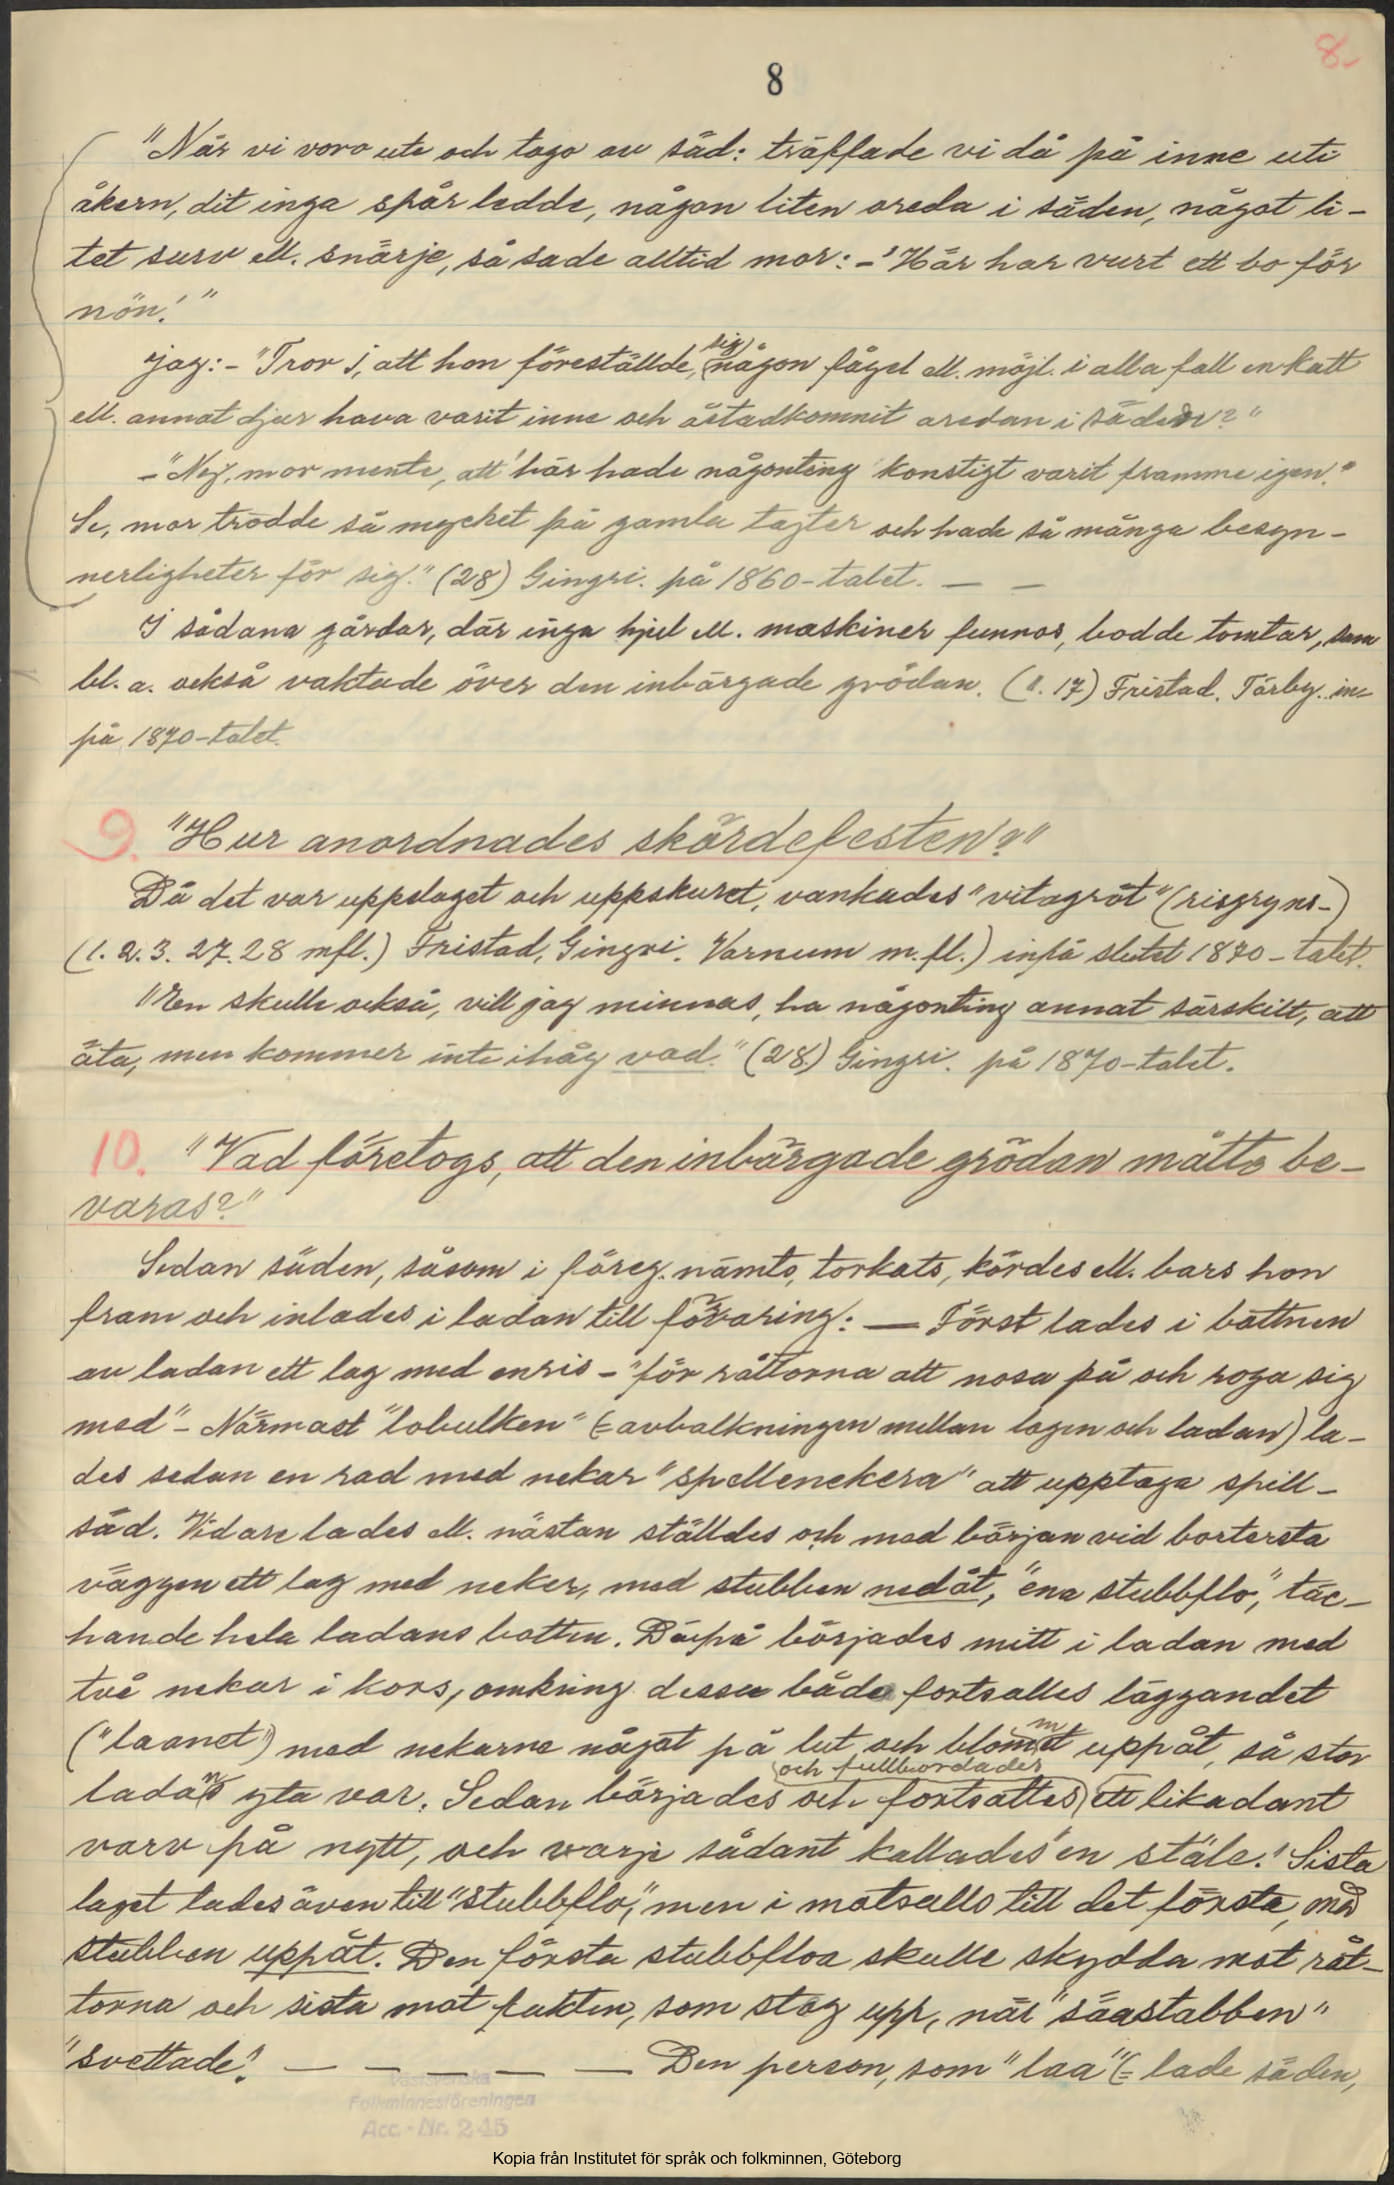 8
8.
"När vi voro ute och togo av säd: träffade vi då på inne uti
åkern, dit inga spår ledde, någon liten oreda i säden, något li-
tet surv ell. snärje, så sade alltid mor: - 'Här har vurt ett bo för
nön!'"
jag: - "Tror I, att hon föreställde, sig någon fågel ell. möjl. i alla fall en katt
ell. annat djur hava varit inne och åstadkommit oredan i säden?"
- "Nej, mor mente, att 'här hade någonting konstigt varit framme igen.'
Se, mor trodde så mycket på gamla tagter och hade så många besyn-
nerligheter för sig." (28) Gingri. på 1860-talet. — —
I sådana gårdar, där inga hjul ell. maskiner funnos, bodde tomtar, som
bl. a. också vaktade över den inbärgade grödan. (1. 17) Fristad. Tärby. in-
på 1870-talet.
9. "Hur anordnades skördefesten?"
Då det var uppslaget och uppskuret, vankades "vitagröt" (risgryns-)
(1. 2. 3. 27. 28 mfl.) Fristad, Gingri. Varnum m. fl.) inpå slutet 1870-talet.
"En skulle också, vill jag minnas, ha någonting annat särskilt, att
äta, men kommer inte ihåg vad." (28.) Gingri. på 1870-talet.
10. "Vad företogs, att den inbärgade grödan måtte be-
varas?"
Sedan säden, såsom i föreg. nämts, torkats, kördes ell. bars hon
fram och inlades i ladan till förvaring: — Först lades i bottnen
av ladan ett lag med enris - "för råttorna att nosa på och roga sig
med" - Närmast "lobulken" (= avbalkningen mellan logen och ladan) la-
des sedan en rad med nekar "spellenekera" att upptaga spill-
säd. Vidare lades ell. nästan ställdes och med början vid bortersta
väggen ett lag med neker, med stubben nedåt, "ena stubbflo", täc-
kande hela ladans botten. Därpå börjades mitt i ladan med
två nekar i kors, omkring dessa båda fortsattes läggandet
("laanet") med nekarne något på lut och blommet uppåt, så stor
och fullbordades
ladans yta var. Sedan börjades och fortsattes ett likadant
varv på nytt, och varje sådant kallades 'en stäle.' Sista
laget lades även till "stubbflo", men i motsatts till det första, med
stubben uppåt. Den första stubbfloa skulle skydda mot råt-
torna och sista mot fukten, som stog upp, när "säastabben"
"svettade". — — — — — Den person, som "laa" (= lade säden,
Västsvenska
Folkminnesföreningen
Acc.-Nr. 215
Kopia från Institutet för språk och folkminnen, Göteborg